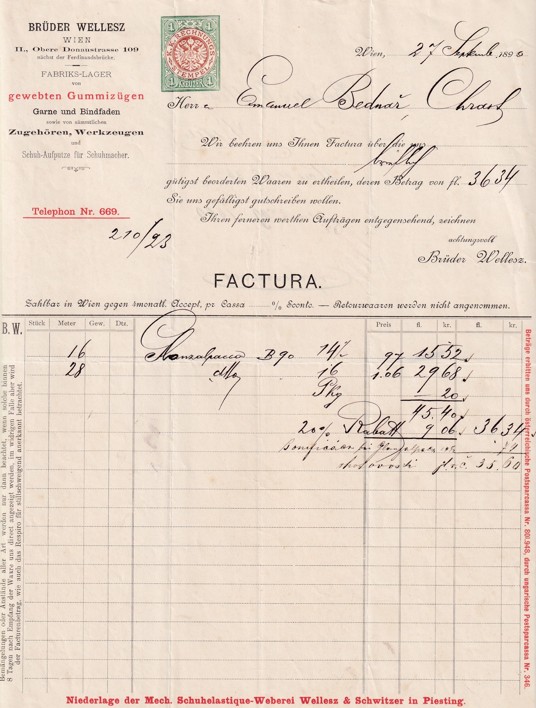 BRÜDER WELLESZ
WIEN
II., Obere Donaustrasse 109
nächst der Ferdinandsbrücke.
FABRIKS-LAGER
von
gewebten Gummizügen
Garne und Bindfaden
sowie von sämmtlichen
Zugehören, Werkzeugen
und
Schuh-Aufputze für Schuhmacher.
Telephon Nr. 669.
210/23
1 1
K.K. RECHNUNGS STEMPEL
1 KREUZER 1
Wien, 27 Septemb. 1890
Herrn Emanuel Bednář, Chrast
Wir beehren uns Ihnen Factura über die uns
brieflich
gütigst beorderten Waaren zu ertheilen, deren Betrag von fl. 36.34
Sie uns gefälligst gutschreiben wollen.
Ihren ferneren werthen Aufträgen entgegensehend, zeichnen
achtungsvoll
Brüder Wellesz.
FACTURA.
Zahlbar in Wien gegen 4monatl. Accept, pr Cassa % Sconto. — Retourwaaren werden nicht angenommen.
B. W. Stück Meter Gew. Dtz. Preis fl. kr. fl. kr.
16 B 90 14 97 15 52
28 dtto 16 1.06 29 68
Pkg 1 20
45.40
20% Rabatt 9 06 36 34
35.60
Bemängelungen oder Anstände aller Art werden nur dann beachtet, wenn solche binnen
8 Tagen nach Empfang der Waare uns direct angezeigt werden, im widrigen Falle aber wird
der Facturenbetrag, wie auch das Respiro für stillschweigend anerkannt betrachtet.
Beträge erbitten uns durch österreichische Postsparcassa Nr. 801.948, durch ungarische Postsparcassa Nr. 346.
Niederlage der Mech. Schuhelastique-Weberei Wellesz & Schwitzer in Piesting.